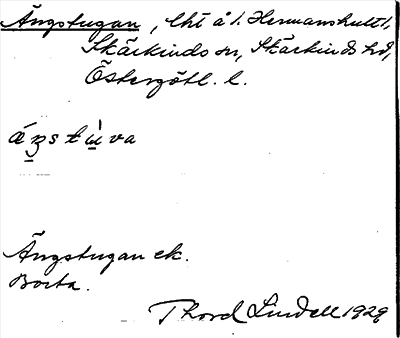 Ängstugan, lht å 1. Hermanshult 1,
Skärkinds sn, Skärkinds hd,
Östergötl. l.
Ängstugan ek.
Borta.
Thord Lindell 1929